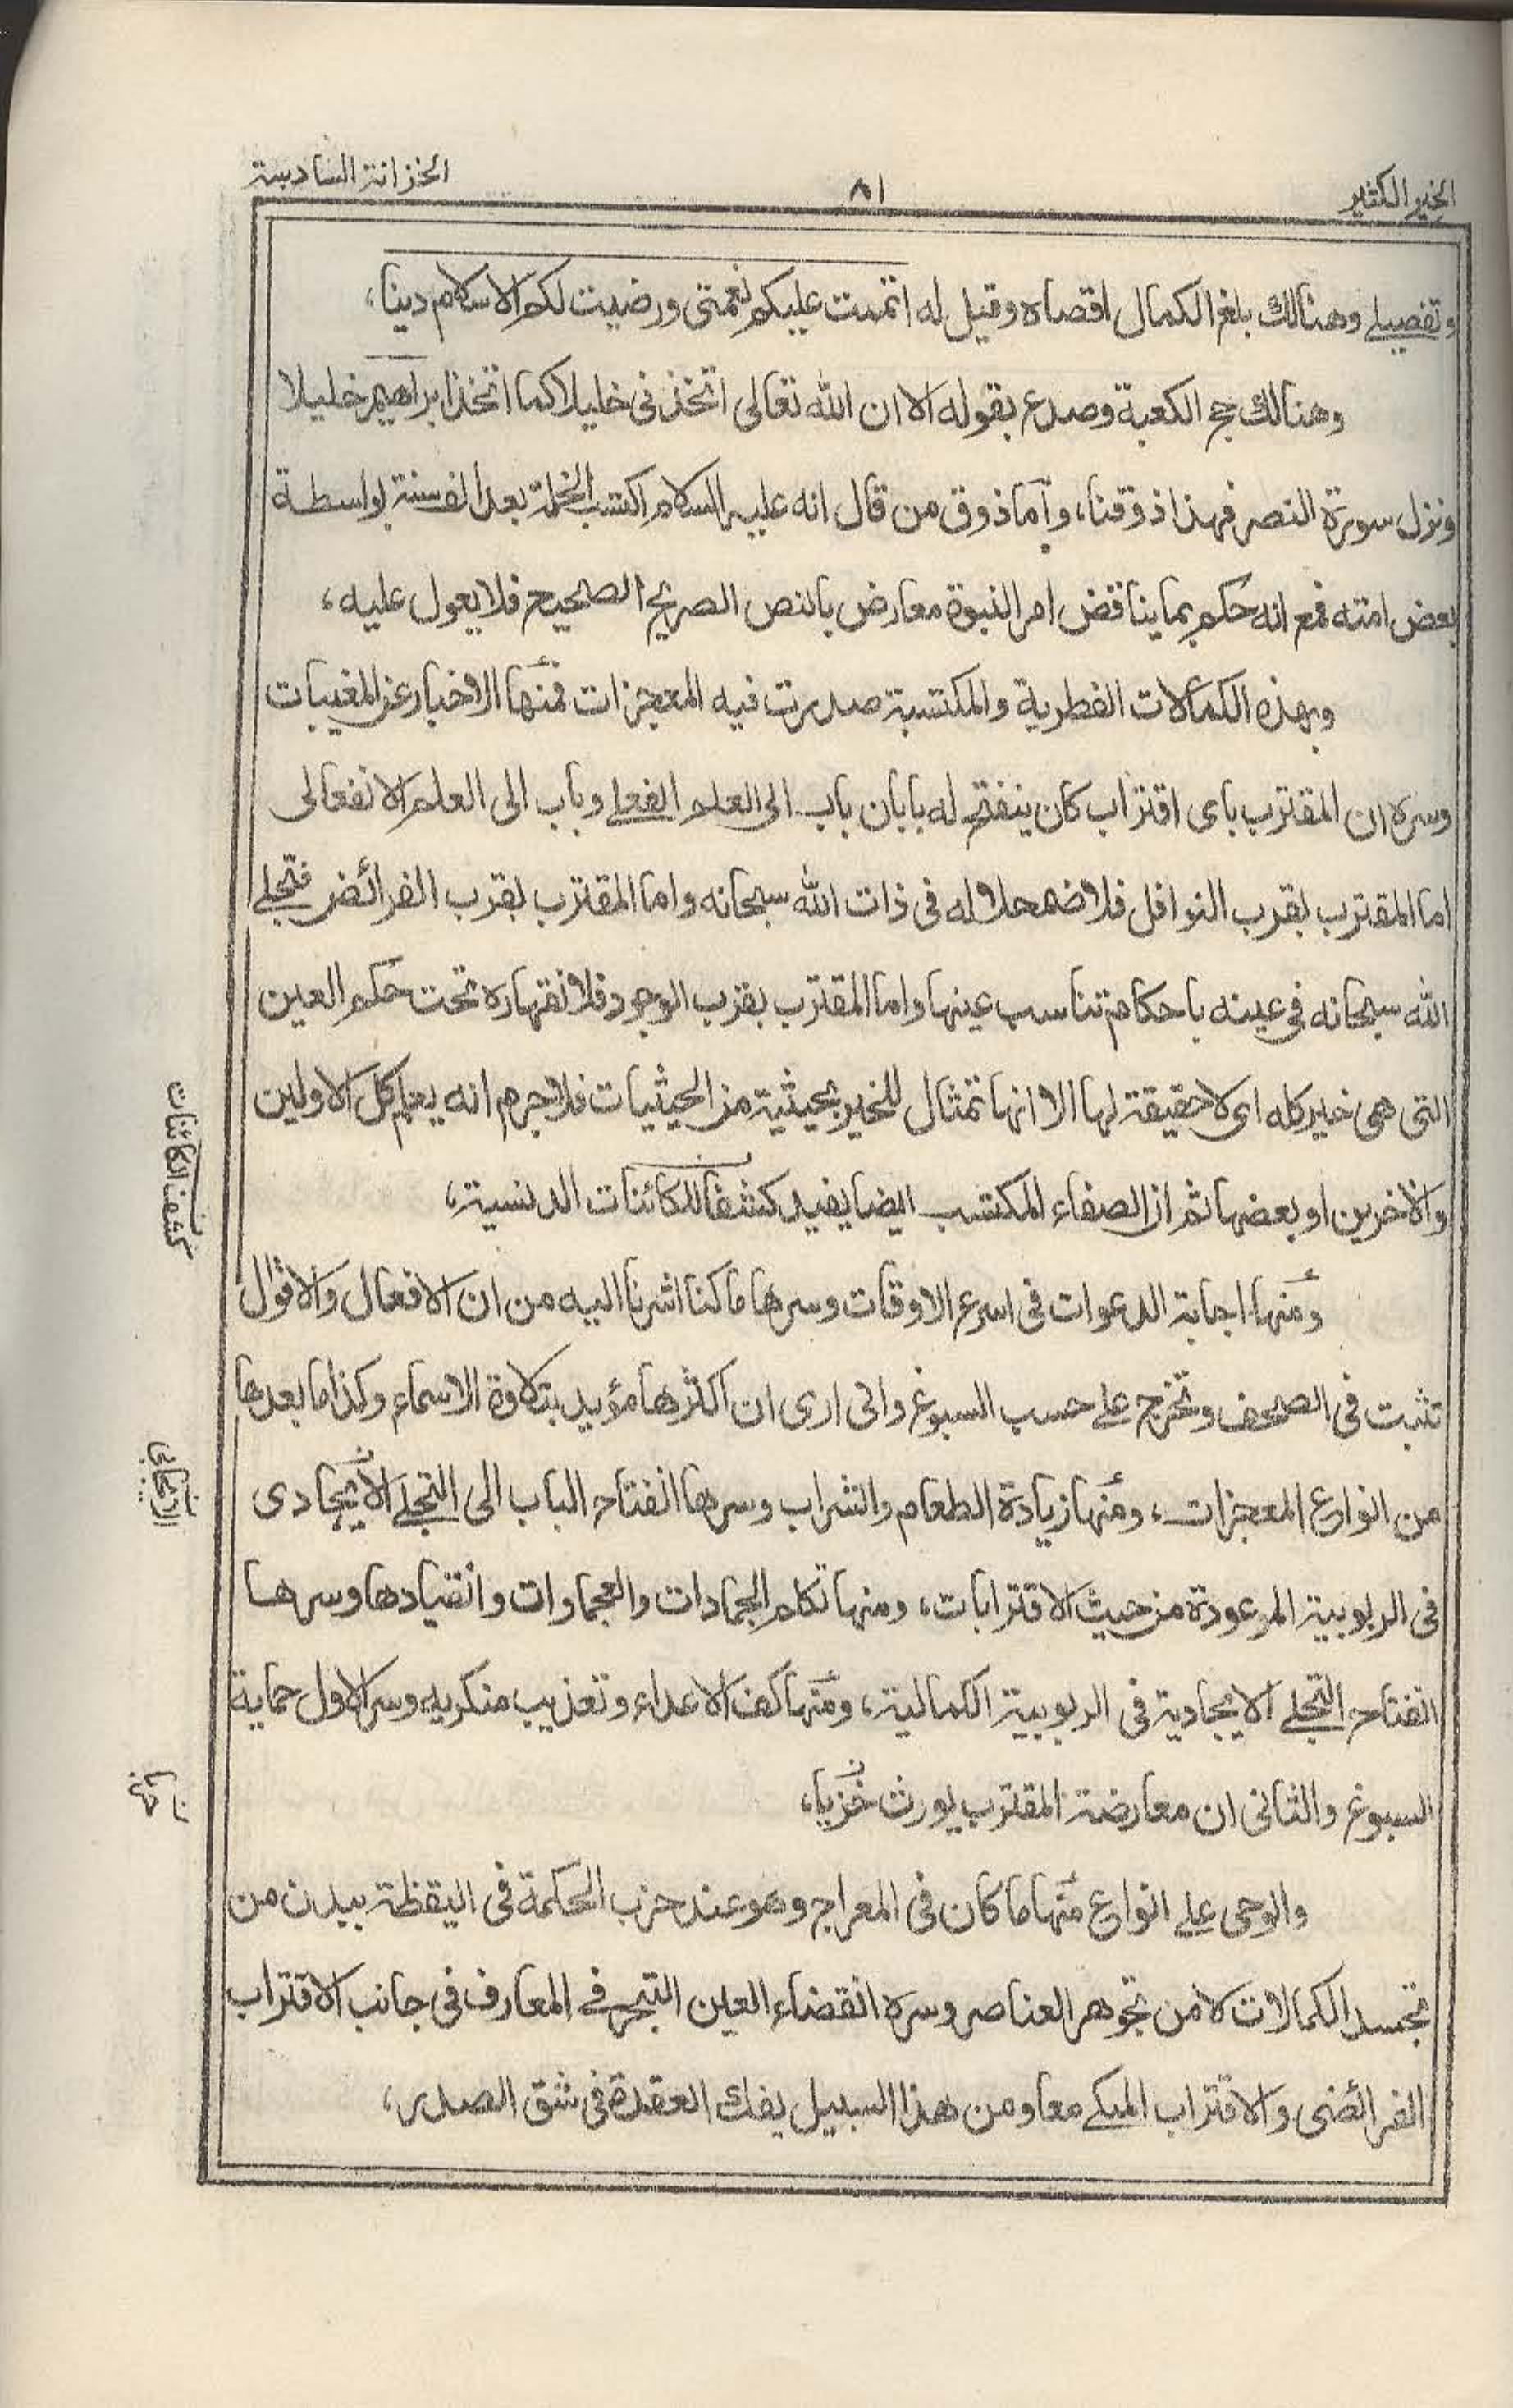 الخير الكثير
٨١
الخزانة السادسة
وتفصيلے وهنالك بلغ الكمال اقصاه وقيل له اتممت عليكم نعمتى ورضيت لكم الاسلام دينا،
وهنالك حج الكعبة وصدع بقوله الا ان الله تعالى اتخذنى خليلا كما اتخذ ابراهيم خليلا
ونزل سورة النصر فهذا ذوقنا، واما ذوق من قال انه عليه السلام اكتسب الخلة بعد الف سنة بواسطة
بعض امته فمع انه حكم بما يناقض امر النبوة معارض بالنص الصريح الصحيح فلا يعول عليه،
وبهذه الكمالات الفطرية والمكتسبة صدرت فيه المعجزات فمنها الاخبار عن المغيبات
وسره ان المقترب باى اقتراب كان ينفتح له بابان باب الى العلم الفعلے وباب الى العلم الانفعالى
اما المقترب بقرب النوافل فلاضمحلاله فى ذات الله سبحانه واما المقترب بقرب الفرائض فتجلے
الله سبحانه فى عينه باحكام تناسب عينها واما المقترب بقرب الوجود فلانقهاره تحت حكم العين
التى هى خير كله اى لا حقيقة لها الا انها تمثال للخير بحيثية من الحيثيات فلا جرم انه يعلم كل الاولين
والاخرين او بعضها ثم ان الصفاء المكتسب ايضا يفيد كشفا للكائنات الدنسية،
كشف الكائنات
ومنها اجابة الدعوات فى اسرع الاوقات وسرها ما كنا اشرنا اليه من ان الافعال والاقوال
تثبت فى الصحف وتخرج علے حسب السبوغ وانى ارى ان اكثرها مؤيد بتلاوة الاسماء وكذا ما بعدها
من انواع المعجزات، ومنها زيادة الطعام والشراب وسرها انفتاح الباب الى التجلے الايجادى
فى الربوبية الموعودة من حيث الاقترابات، ومنها تكلم الجمادات والعجماوات وانقيادها وسرها
انفتاح التجلے الايجادية فى الربوبية الكمالية، ومنها كف الاعداء وتعذيب منكريه وسر الاول حماية
السبوغ والثانى ان معارضة المقترب يورث خزيا،
والوحى علے انواع منها ما كان فى المعراج وهو عند حزب الحكمة فى اليقظة ببدن من
تجسد الكمالات لا من تجوهر العناصر وسره انقضاء العين التبحر فے المعارف فى جانب الاقتراب
الفرائضى والاقتراب الملكے معا ومن هذا السبيل يفك العقدة فى شق الصدر،